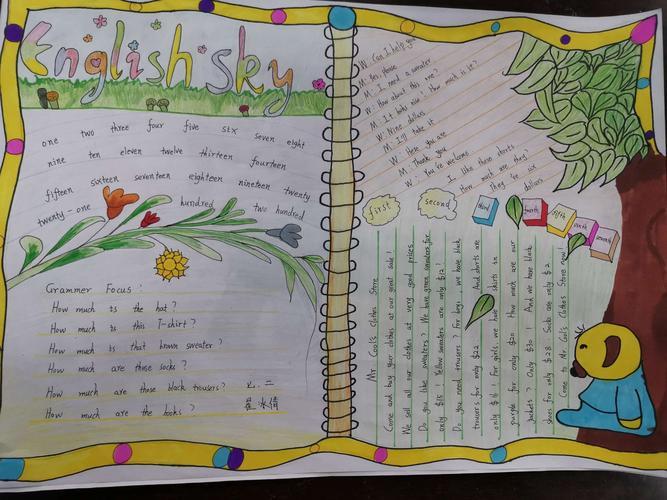 English sky
one two three four five six seven eight
nine ten eleven twelve thirteen fourteen
fifteen sixteen seventeen eighteen nineteen twenty
twenty-one hundred two hundred
Grammer Focus:
How much is the hat?
How much is this T-shirt?
How much is that brown sweater?
How much are those socks?
How much are those black trousers?
How much are the books?
W: Can I help you
M: Yes please
M: I need a sweater
W: How about this one?
M: It looks nice! How much is it?
W: Nine dollars
M: I'll take it
W: Here you are
M: Thank you
W: You're welcome
I like these shorts
How much are they?
They're six
dollars
first
second
third
fourth
fifth
sixth
seventh
Mr Cool's Clothes Store
Come and buy your clothes at our great sale!
We sell all our clothes at very good prices
Do you like sweaters? We have green sweaters for
only $15! Yellow sweaters are only $12!
Do you need trousers? For boys, we have black
trousers for only $22 And shorts are
only $16! For girls, we have shirts in
purple for only $20 How much are our
jackets? Only $30! And we have black
shoes for only $28 Socks are only $2
Come to Mr Cool's Clothes Store now!